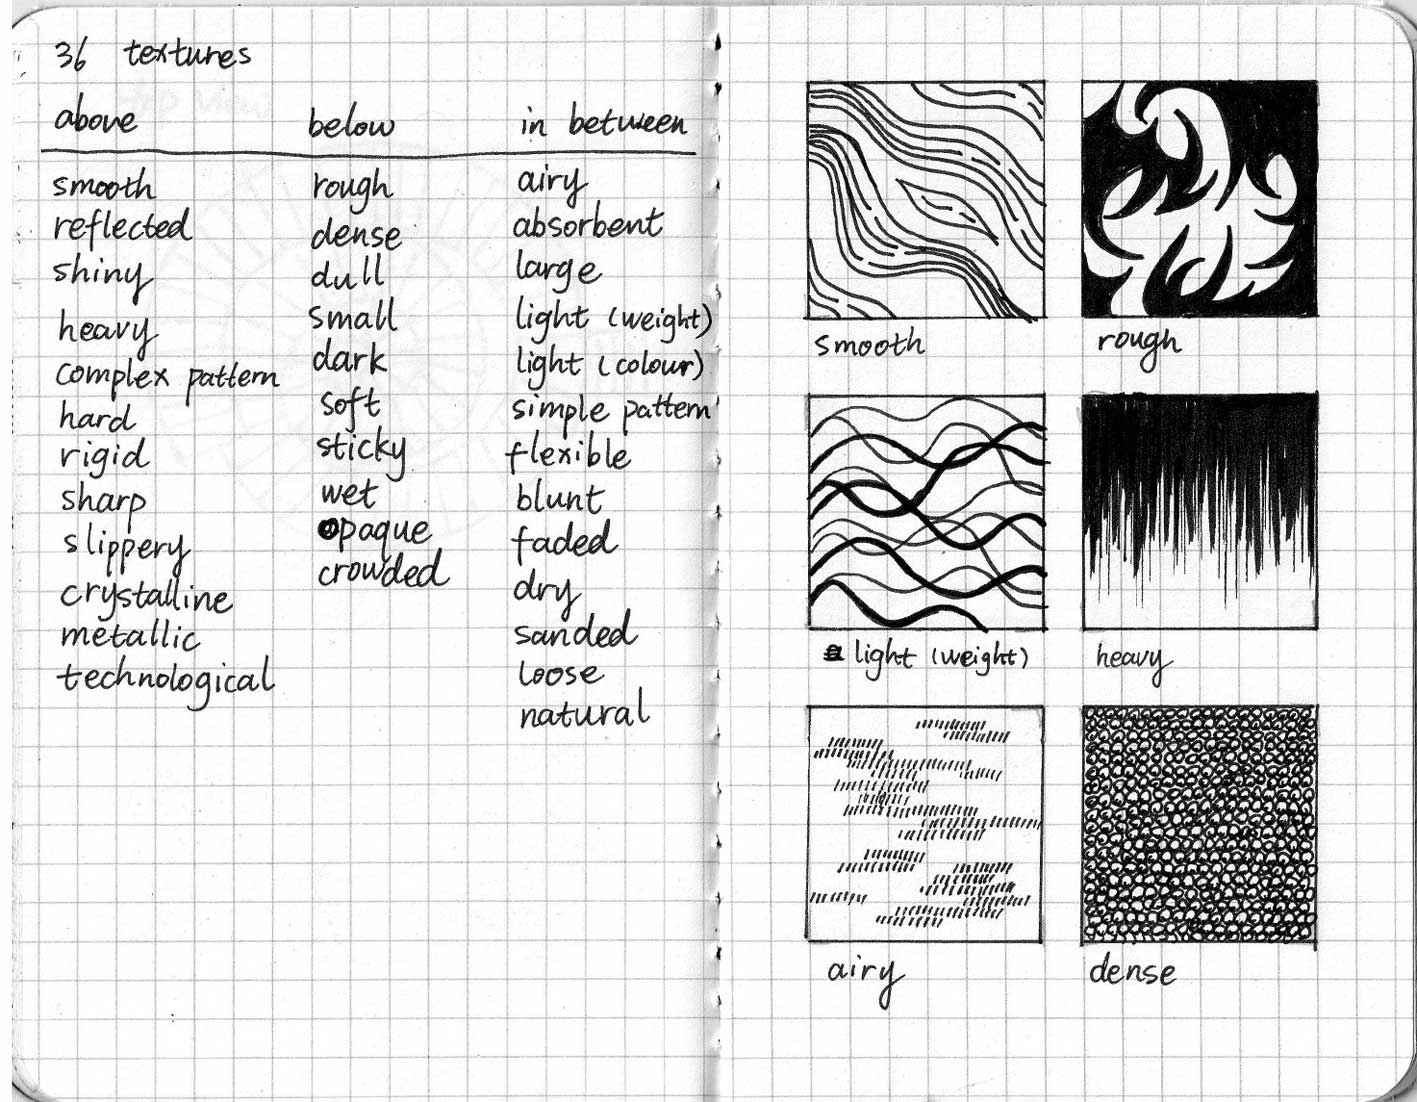 36 textures
above below in between
smooth rough airy
reflected dense absorbent
shiny dull large
heavy small light (weight)
complex pattern dark light (colour)
hard soft simple pattern
rigid sticky flexible
sharp wet blunt
slippery opaque faded
crystalline crowded dry
metallic sanded
technological loose
natural
smooth rough
light (weight) heavy
airy dense